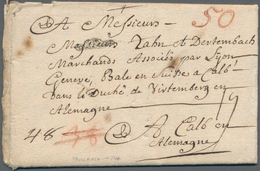 50
A Messieurs
Messieurs Zahn et Dertembach
Marchands Associés par Lyon
Geneve, Bale en Suisse a Calb
dans le Duché de Virtemberg en
Alemagne
48
A Calb en
Alemagne